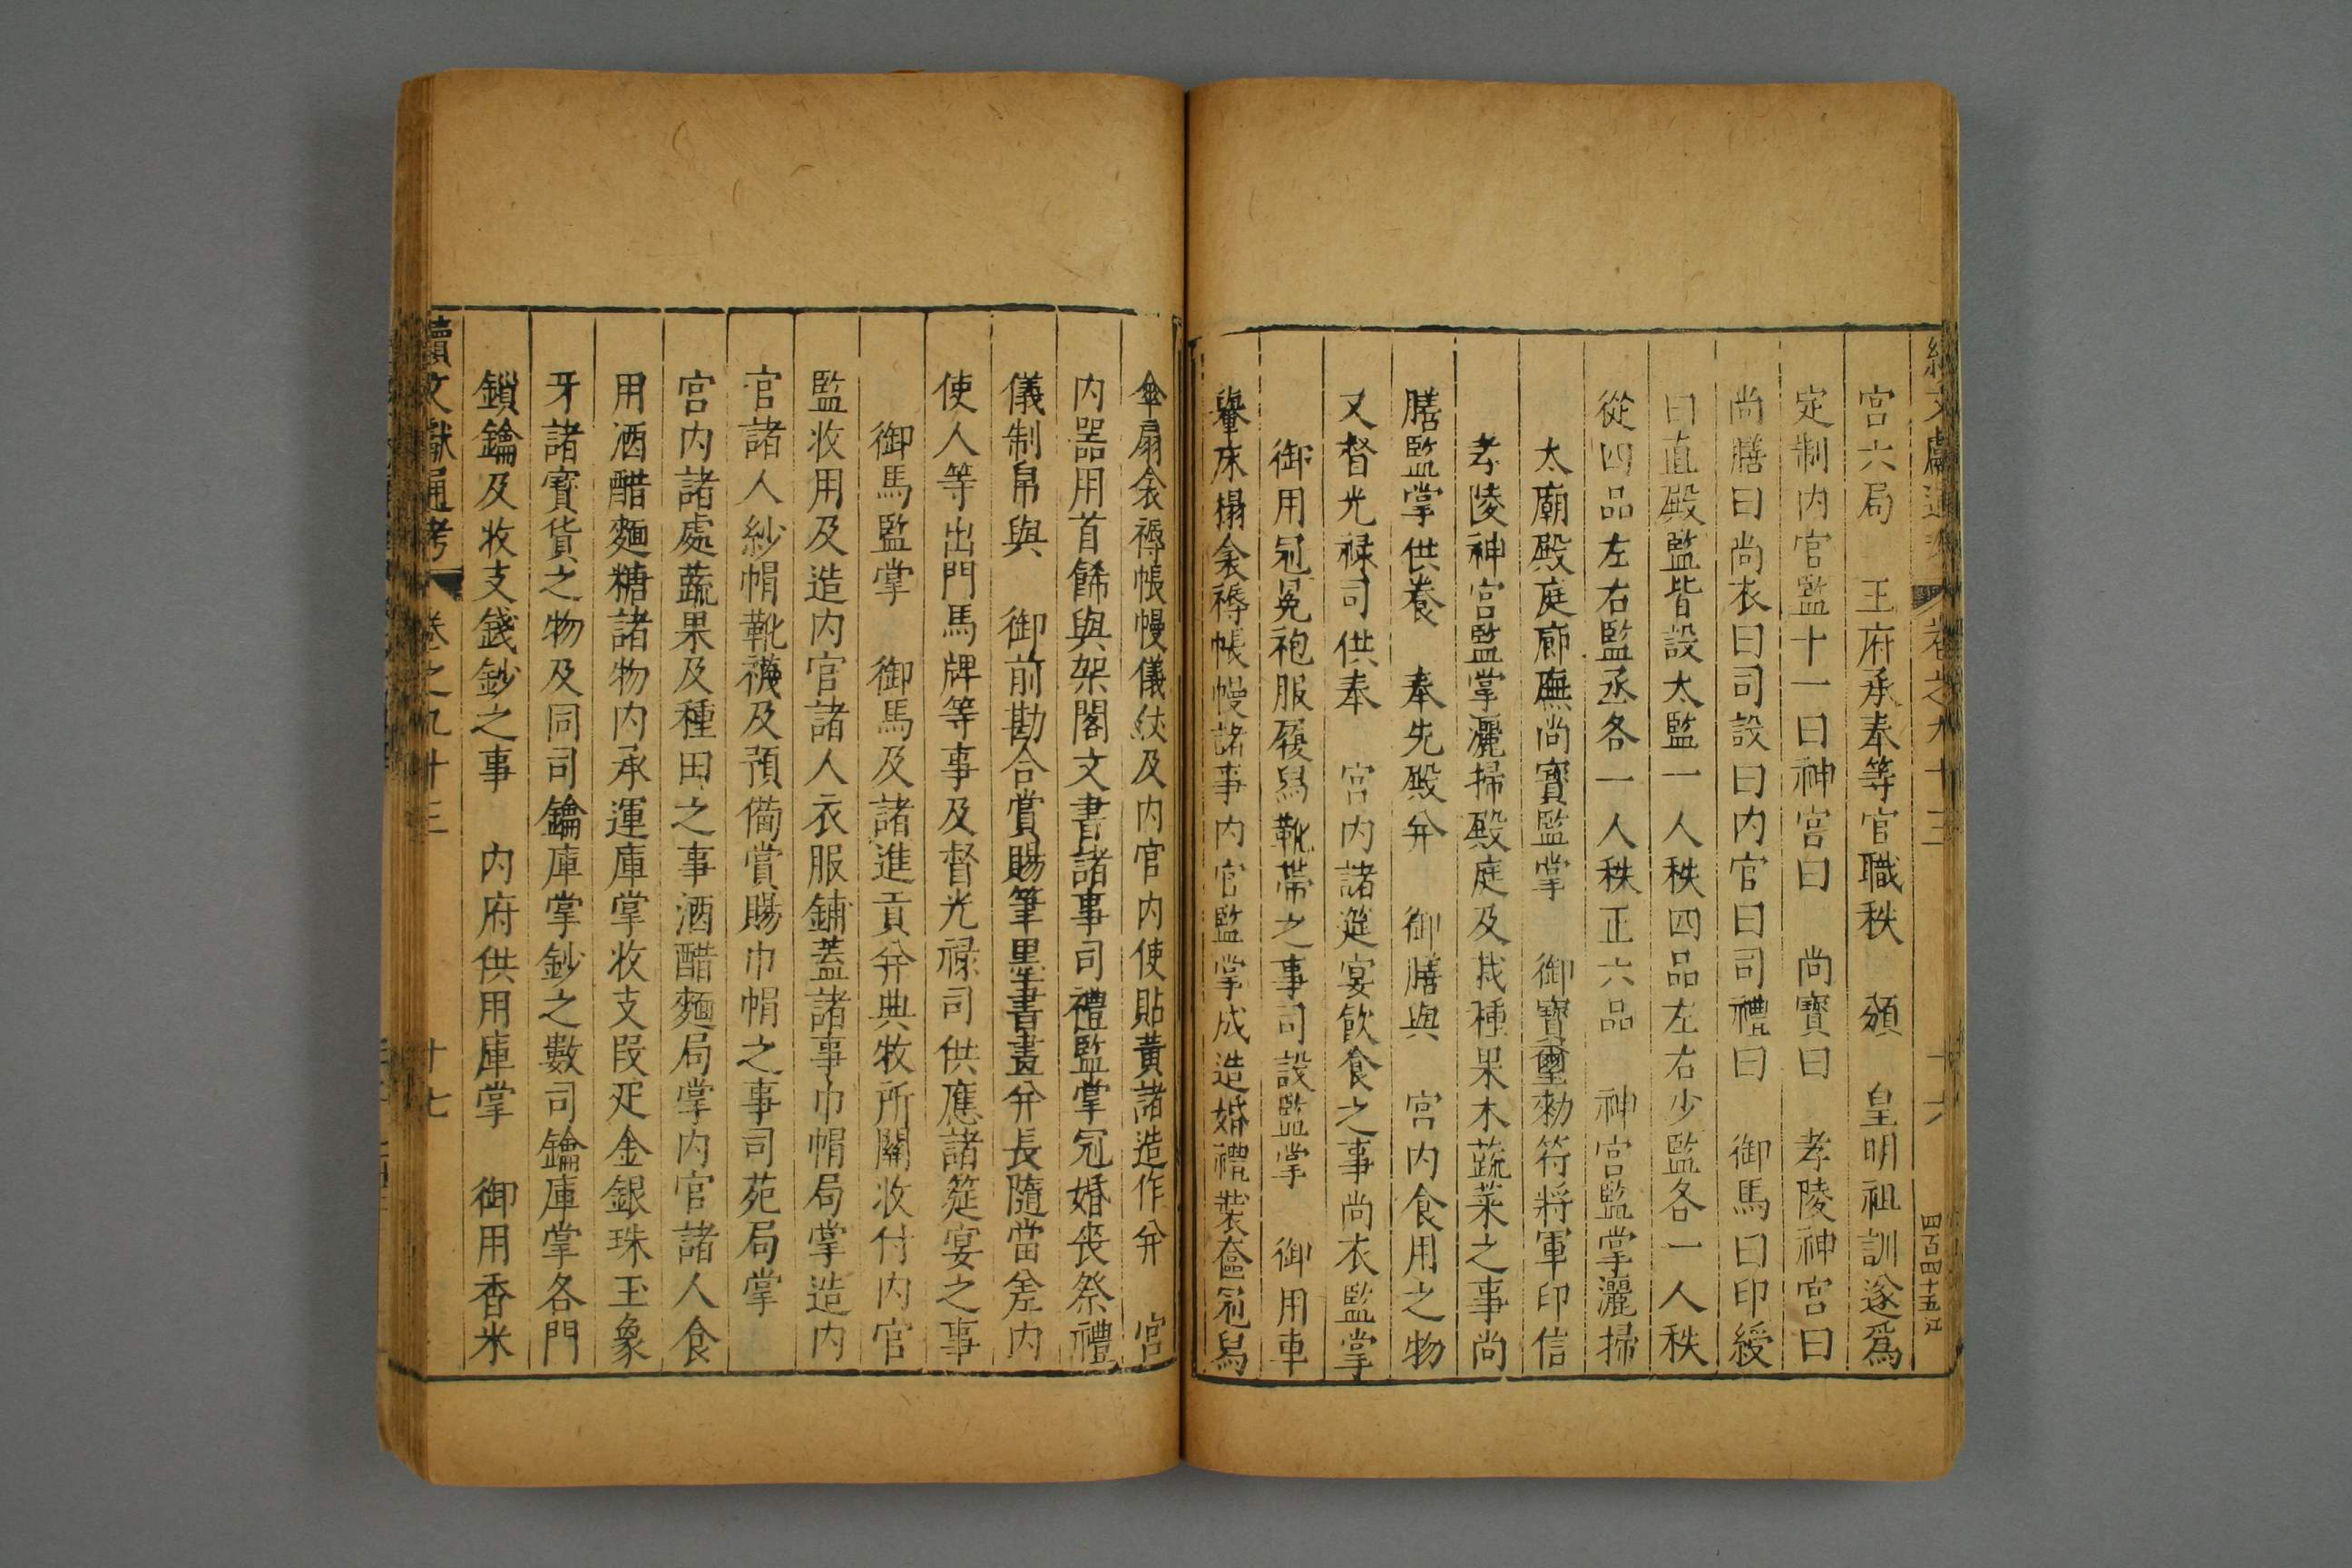 續文獻通考 卷之九十三 十六 四百四十五 江
宮六局 王府承奉等官職秩 頒 皇明祖訓遂爲
定制内官監十一曰神宮曰 尚寶曰 孝陵神宮曰
尚膳曰尚衣曰司設曰内官曰司禮曰 御馬曰印綬
曰直殿監皆設太監一人秩四品左右少監各一人秩
從四品左右監丞各一人秩正六品 神宮監掌灑掃
太廟殿庭廊廡尚寶監掌 御寶璽勑符將軍印信
孝陵神宮監掌灑掃殿庭及栽種果木蔬菜之事尚
膳監掌供養 奉先殿并 御膳與 宮内食用之物
又督光祿司供奉 宮内諸筵宴飲食之事尚衣監掌
御用冠冕袍服履舄靴帶之事司設監掌 御用車
轝床榻衾褥帳幔諸事内官監掌成造婚禮裝奩冠舄
傘扇衾褥帳幔儀仗及内官内使貼黃諸造作并 宮
内器用首飾與架閣文書諸事司禮監掌冠婚丧祭禮
儀制帛與 御前勘合賞賜筆墨書畫并長隨當差内
使人等出門馬牌等事及督光祿司供應諸筵宴之事
御馬監掌 御馬及諸進貢并典牧所關收付内官
監收用及造内官諸人衣服鋪蓋諸事巾帽局掌造内
官諸人紗帽靴襪及預備賞賜巾帽之事司苑局掌
宮内諸處蔬果及種田之事酒醋麵局掌内官諸人食
用酒醋麵糖諸物内承運庫掌收支段疋金銀珠玉象
牙諸寶貨之物及同司鑰庫掌鈔之數司鑰庫掌各門
鎖鑰及收支錢鈔之事 内府供用庫掌 御用香米
續文獻通考 卷之九十三 十七